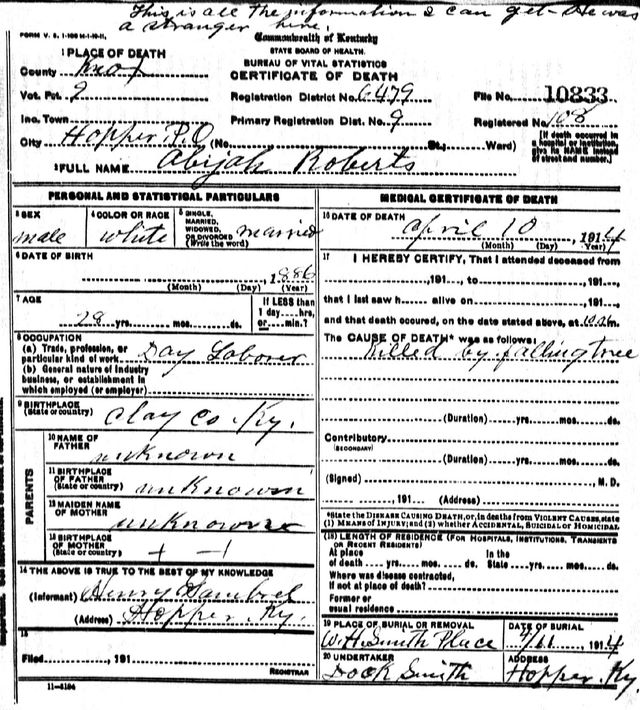 This is all the information I can get - He was
a stranger here.
FORM V. S. 1-
Commonwealth of Kentucky
STATE BOARD OF HEALTH.
BUREAU OF VITAL STATISTICS
CERTIFICATE OF DEATH
1 PLACE OF DEATH
County Knox
Vot. Pct. 9 Registration District No. 6479 File No. 10833
Inc. Town Primary Registration Dist. 9 Registered No. 108
City Hopper P.O. (No. St.; Ward)
[If death occurred in a hospital or institution, give its NAME instead of street and number.]
2 FULL NAME Abijah Roberts
PERSONAL AND STATISTICAL PARTICULARS
3 SEX
male
4 COLOR OR RACE
white
5 SINGLE, MARRIED, WIDOWED, OR DIVORCED (Write the word)
married
6 DATE OF BIRTH
1886
(Month) (Day) (Year)
7 AGE
28 yrs. mos. ds.
If LESS than 1 day hrs. or min.?
8 OCCUPATION
(a) Trade, profession, or particular kind of work Day Laborer
(b) General nature of industry business, or establishment in which employed (or employer)
9 BIRTHPLACE
(State or country) Clay Co. Ky.
PARENTS
10 NAME OF FATHER
unknown
11 BIRTHPLACE OF FATHER
(State or country) unknown
12 MAIDEN NAME OF MOTHER
unknown
13 BIRTHPLACE OF MOTHER
(State or country)
14 THE ABOVE IS TRUE TO THE BEST OF MY KNOWLEDGE
(Informant) Henry
(Address) Hopper, Ky.
15
Filed , 191
REGISTRAR
11-
MEDICAL CERTIFICATE OF DEATH
16 DATE OF DEATH
April 10, 1914
(Month) (Day) (Year)
17 I HEREBY CERTIFY, That I attended deceased from
, 191 , to , 191 ,
that I last saw h alive on , 191 ,
and that death occured, on the date stated above, at m.
The CAUSE OF DEATH* was as follows:
Killed by falling tree
(Duration) yrs. mos. ds.
Contributory
(SECONDARY)
(Duration) yrs. mos. ds.
(Signed) M. D.
, 191 (Address)
*State the DISEASE CAUSING DEATH, or, in deaths from VIOLENT CAUSES, state
(1) MEANS OF INJURY; and (2) whether ACCIDENTAL, SUICIDAL or HOMICIDAL.
(18) LENGTH OF RESIDENCE (FOR HOSPITALS, INSTITUTIONS, TRANSIENTS OR RECENT RESIDENTS)
At place of death yrs. mos. ds. In the State yrs. mos. ds.
Where was disease contracted,
If not at place of death?
Former or
usual residence
19 PLACE OF BURIAL OR REMOVAL
W. H. Smith Place
DATE OF BURIAL
4/11, 1914
20 UNDERTAKER
Dock Smith
ADDRESS
Hopper, Ky.